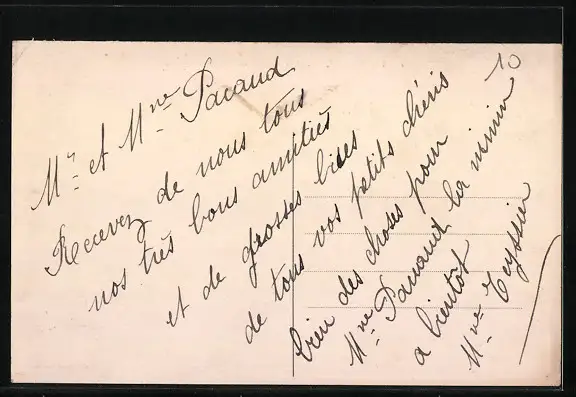 10
Mr et Mme Pacaud
Recevez de nous tous
nos très bons amitiés
et de grosses bises
de tous vos petits chéris
bien des choses pour
Mme Pacaud la mimin
a bientot
Mme Teyssier